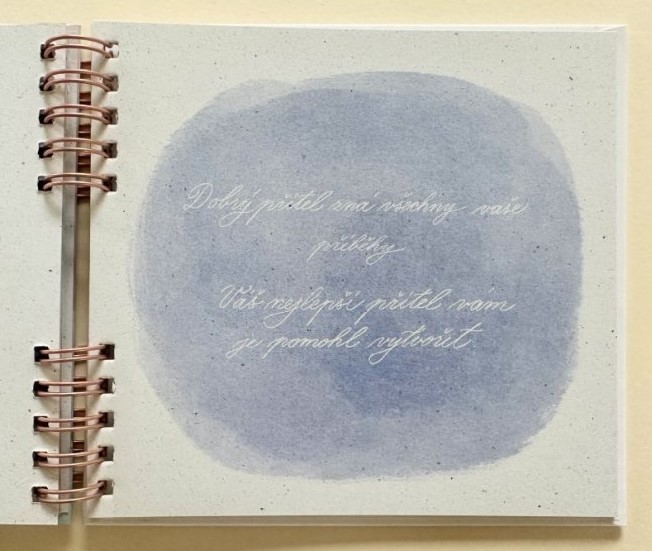 Dobrý přítel zná všechny vaše
příběhy
Váš nejlepší přítel vám
je pomohl vytvořit